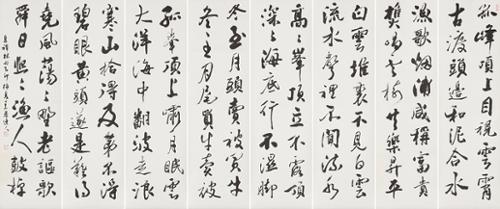 孤峰頂上目視雲霄
古渡頭邊和泥合水
漁歌烟浦咸稱富貴
樵唱共樂昇平
白雲堆裏不見白雲
流水聲裡不聞流水
高高峯頂立不露頂
深深海底行不濕脚
冬至月頭賣被買牛
冬至月尾賣牛買被
孤峯頂上嘯月眠雲
大洋海中翻波走浪
寒山拾得及第不得
碧眼黃頭
堯風蕩蕩野老謳歌
舜日熙熙漁人鼓棹